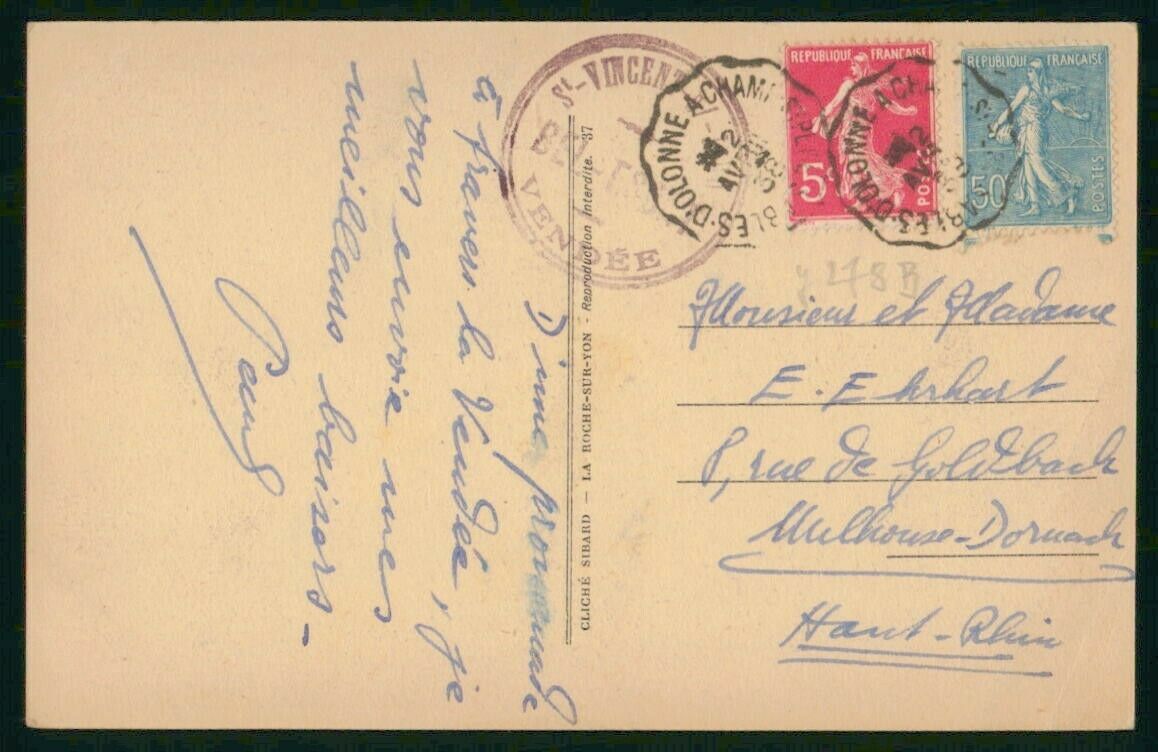 D'une promenade
à travers la Vendée, je
vous envoie mes
meilleurs baisers -
Paul
CLICHÉ SIBARD — LA ROCHE-SUR-YON - Reproduction Interdite. 37
St-VINCENT
VENDÉE
D'OLONNE A CHAM
AVR
REPUBLIQUE FRANÇAISE
5
POSTES
D'OLONNE A CHA
REPUBLIQUE FRANÇAISE
50
POSTES
Monsieur et Madame
E. Ehrhart
8, rue de Goldbach
Mulhouse-Dornach
Haut-Rhin